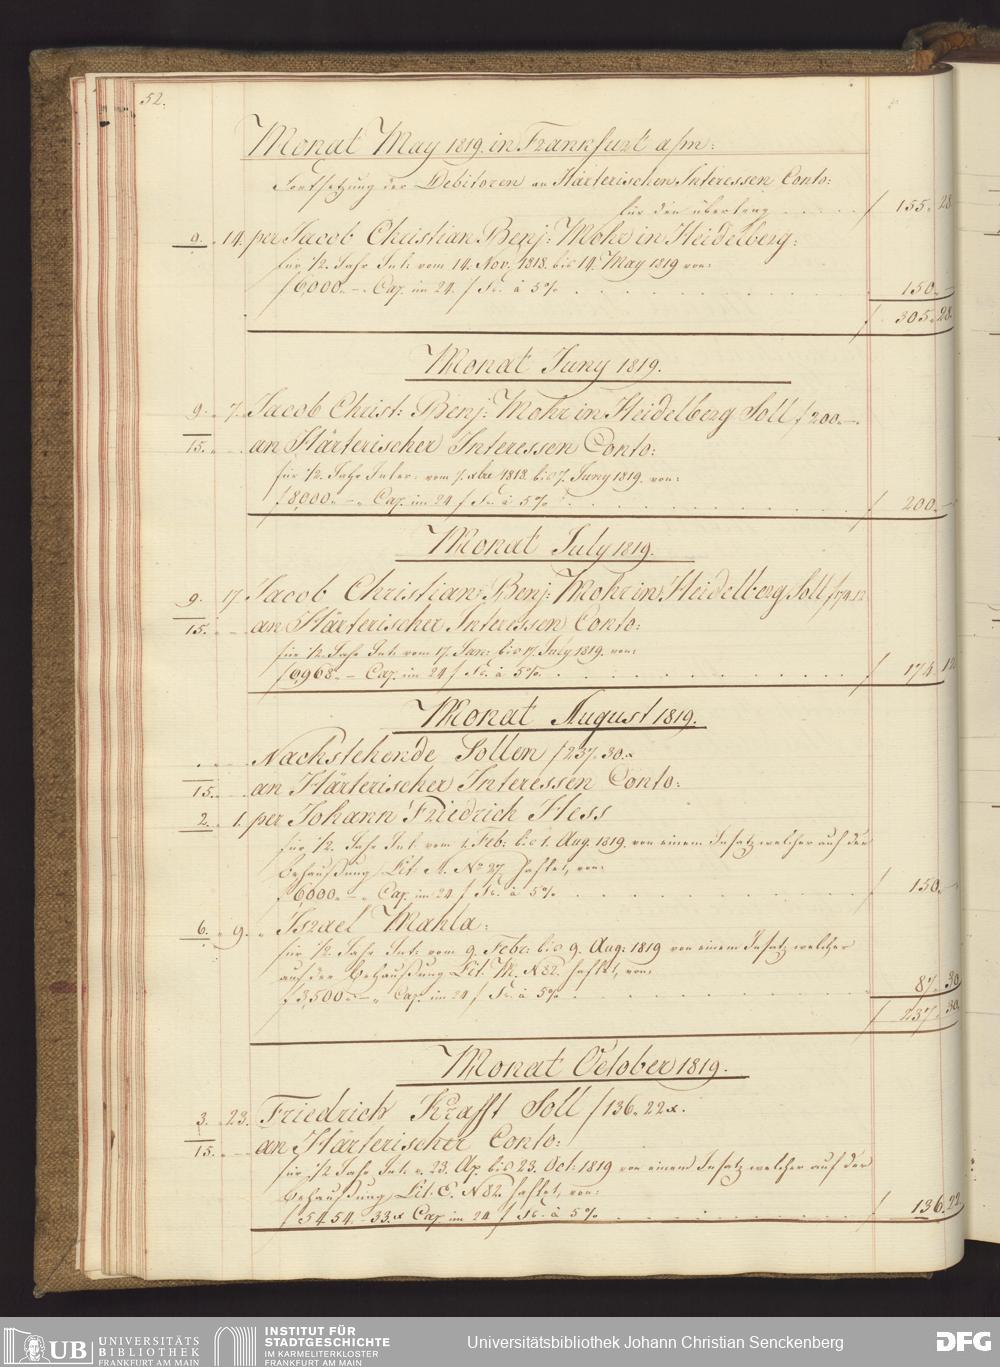 52.
Monat May 1819. in Frankfurt a/m:
Fortsetzung der Debitoren an Härterischen Interessen Conto:
für den übertrag . . . . . f 155. 28
9. 14. per Jacob Christian Benj: Mohr in Heidelberg:
für 1/2. Jahr Int: vom 14. Nov. 1818. bis 14. May 1819 von:
f 6,000. – Cap. im 24. f Fs. à 5% . . . . . . . . . 150. –
f 305. 28.
Monat Juny 1819.
9. 7. Jacob Christ: Benj: Mohr in Heidelberg Soll f 200. –.
15. an Härterischer Interessen Conto:
für 1/2. Jahr Inter: vom 7. xbr 1818. bis 7. Juny 1819. von:
f 8,000. – Cap. im 24 f Fs. à 5% . . . . . . . . . f 200. –
Monat July 1819.
9. 17 Jacob Christian Benj: Mohr in Heidelberg Soll f 174. 12
15. an Härterischer Interessen Conto:
für 1/2. Jahr Int: vom 17. Jan: bis 17. July 1819. von:
f 6,968. – Cap. im 24 f Fs. à 5%. . . . . . . . . . f 174. 12
Monat August 1819.
Nachstehende Sollen f 237. 30.x
15. an Härterischer Interessen Conto:
2. 1. per Johann Friedrich Hess
für 1/2. Jahr Int: vom 1. Feb: bis 1. Aug. 1819. von einem Insatz welcher auf der
Behaußung Lit: A. No. 27 haftet, von:
f 6,000. – Cap. im 24 f Fs. à 5% . . . . . . . . . f 150. –
6. 9. " Israel Mahla:
für 1/2. Jahr Int: vom 9. Febr: bis 9. Aug: 1819 von einem Insatz welcher
auf der Behaußung Lit: M. N 82. haftet, von:
f 3,500. – Cap. im 24 f Fs. à 5% . . . . . . . . . 87. 30
f 237. 30.
Monat October 1819.
3. 23. Friedrich Krafft Soll f 136. 22x.
15. an Härterischer Conto:
für 1/2 Jahr Int: v. 23. Ap. bis 23. Oct: 1819 von einem Insatz welcher auf der
Behaußung Lit: E. N 82. haftet, von:
f 5454. 33.x Cap im 24 f Fs. à 5% . . . . . . . . . f 136. 22.
UB UNIVERSITÄTS BIBLIOTHEK FRANKFURT AM MAIN
INSTITUT FÜR STADTGESCHICHTE IM KARMELITERKLOSTER FRANKFURT AM MAIN
Universitätsbibliothek Johann Christian Senckenberg
DFG